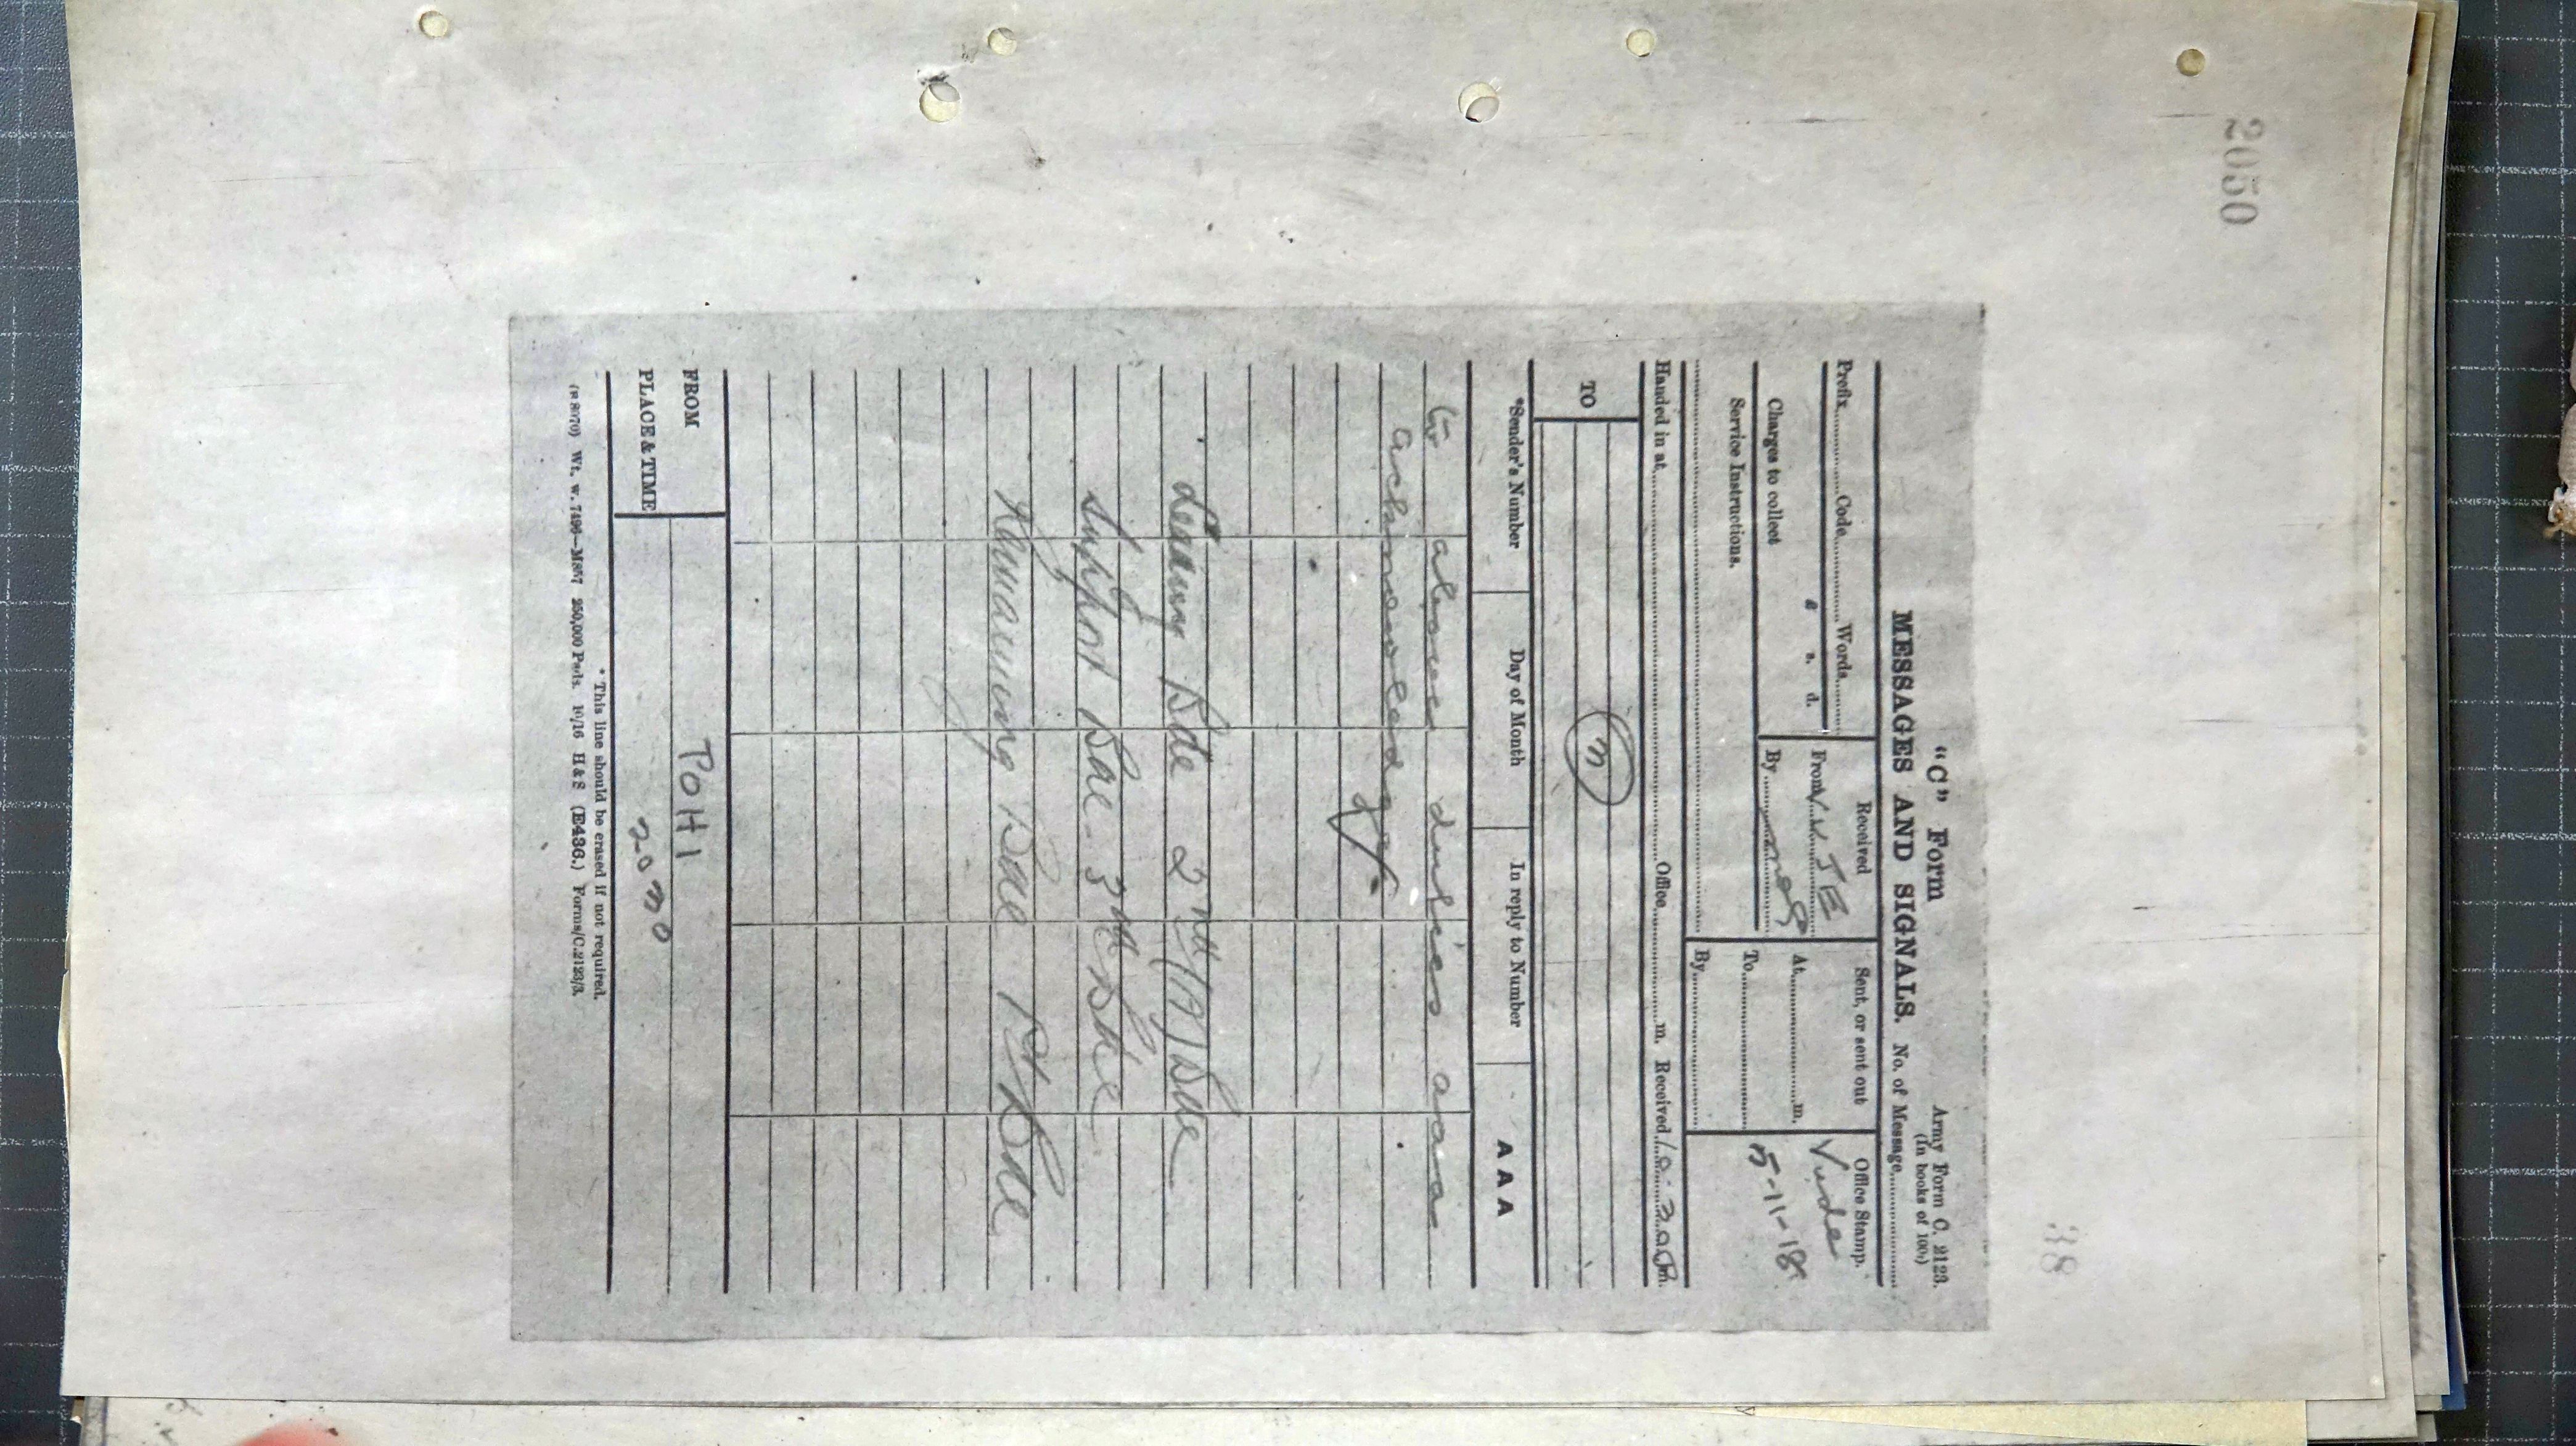 2050
38
"C" Form
Army Form C. 2123.
(In books of 100.)
MESSAGES AND SIGNALS. No. of Message
Prefix Code Words
Received
Sent, or sent out
Office Stamp.
£ s. d.
From VVJE
At m.
Vude
Charges to collect
By
To
5-11-18
Service Instructions.
By
Handed in at Office m. Received 10.30 Pm.
TO
(3)
*Sender's Number
Day of Month
In reply to Number
A A A
to above duties aaa
acknowledge
Leading Bde 2nd (A) Bde
Support Bde 3rd Bde
Remaining Bde 1st Bde
FROM
POHI
PLACE & TIME
2030
* This line should be erased if not required.
Wt. w. 7496—M857 250,000 Pads. 10/16 H & S (E436.) Forms/C.2123/3.